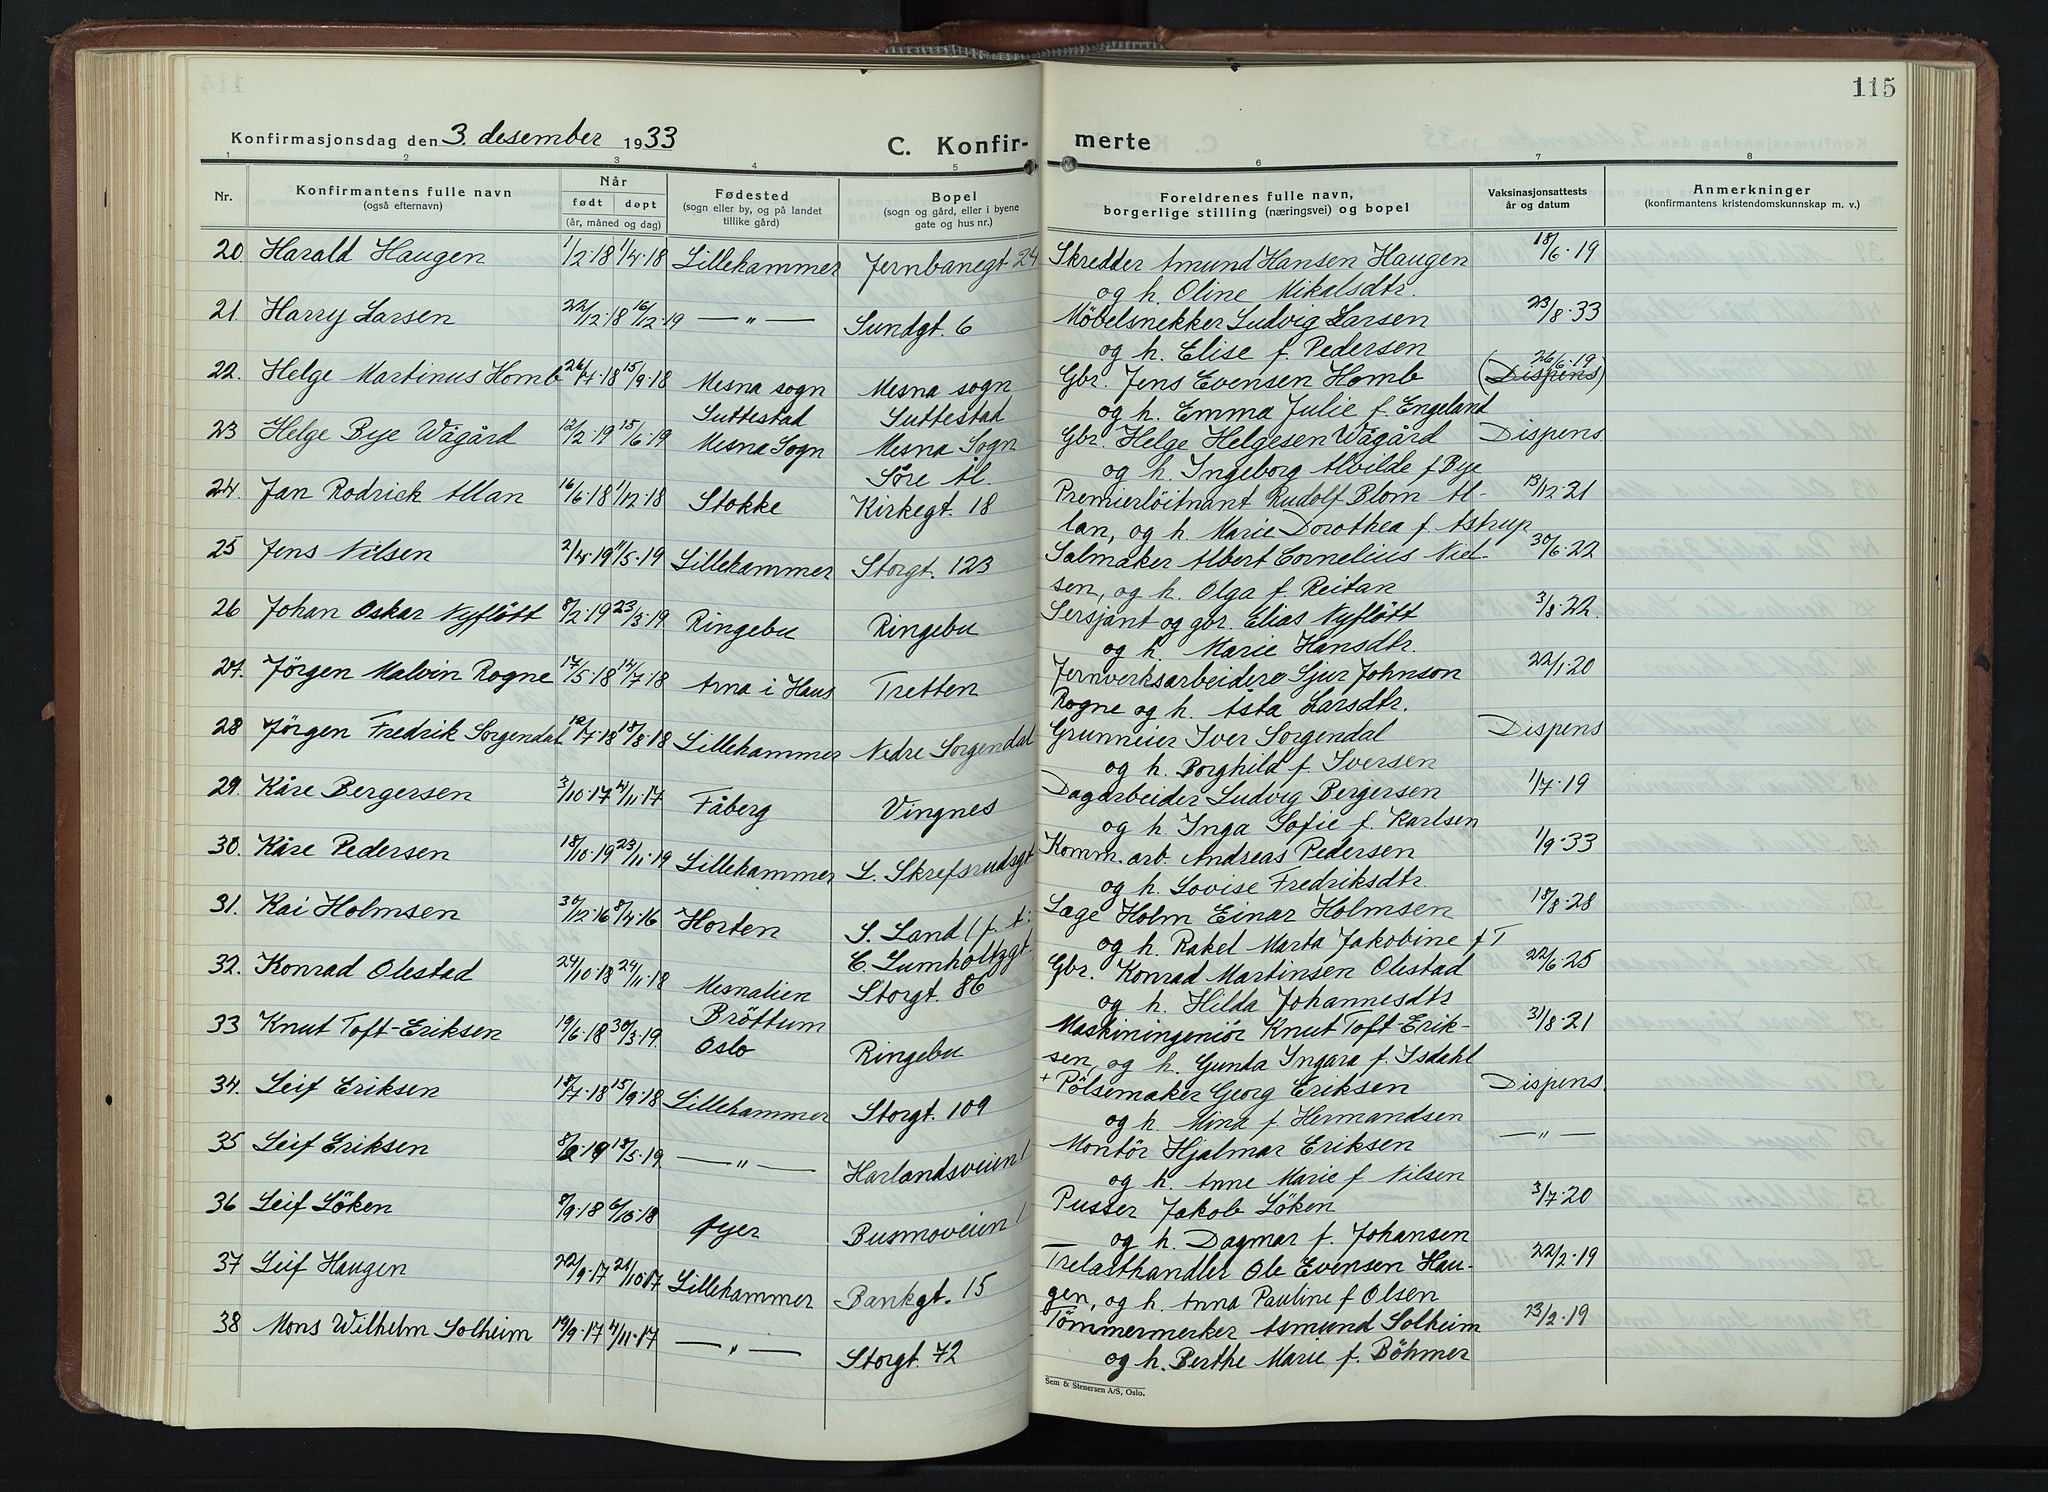 115
Konfirmasjonsdag den 3. desember 1933 C. Konfir- merte
1 2 3 4 5 6 7 8
Nr. Konfirmantens fulle navn (også efternavn) Når født døpt (år, måned og dag) Fødested (sogn eller by, og på landet tillike gård) Bopel (sogn og gård, eller i byene gate og hus nr.) Foreldrenes fulle navn, borgerlige stilling (næringsvei) og bopel Vaksinasjonsattests år og datum Anmerkninger (konfirmantens kristendomskunnskap m. v.)
20 Harald Haugen 1/2·18 1/4·18 Lillehammer Jernbanegt 24 Skredder Amund Hansen Haugen 18/6·19
og h. Oline Mikalsdtr.
21. Harry Larsen 22/12·18 16/12·19 — " — Sundgt. 6 Møbelsnekker Ludvig Larsen 23/8·33
og h. Elise f. Pedersen
22. Helge Martinus Homb 26/4·18 15/9·18 Mesna sogn Mesna sogn Gbr. Jens Evensen Homb 26/6·19 (Dispens)
Suttestad Suttestad og h. Emma Julie f. Engeland
23 Helge Bye Wågård 12/2·19 15/6·19 Mesna Sogn Mesna Sogn Gbr. Helge Helgesen Wågård Dispens
Søre Ål. og h. Ingeborg Alvilde f Bye
24. Jan Rodrick Allan 16/6·18 1/12·18 Stokke Kirkegt. 18 Premierløitnant Rudolf Blom Al- 13/12·21
lan, og h. Marie Dorothea f. Astrup
25 Jens Nilsen 2/4·19 11/5·19 Lillehammer Storgt. 123 Salmaker Albert Cornelius Niel- 30/6·22
sen, og h. Olga f. Reitan
26 Johan Oskar Nyfløtt 8/2·19 23/3·19 Ringebu Ringebu Sersjant og gbr. Elias Nyfløtt 3/8·22.
og h. Marie Hansdtr.
27. Jørgen Malvin Rogne 17/5·18 14/7·18 Arna i Haus Tretten Jernverksarbeider Sjur Johnson 22/1·20
Rogne og h. Asta Larsdtr.
28 Jørgen Fredrik Sorgendal 12/7·18 18/8·18 Lillehammer Nedre Sorgendal Grunneier Iver Sorgendal Dispens
og h. Borghild f. Iversen
29. Kåre Bergersen 3/10·17 4/11·17 Fåberg Vingnes Dagarbeider Ludvig Bergersen 1/7·19
og h. Inga Sofie f. Karlsen
30. Kåre Pedersen 18/10·19 23/11·19 Lillehammer L. Skrefsrudsgt Komm. arb. Andreas Pedersen 1/9·33
og h. Lovise Fredriksdtr.
31. Kai Holmsen 30/12·16 8/4·16 Horten S. Land (f. t: Læge Holm Einar Holmsen 18/8·28
C. Lumholtzgt. og h. Rakel Marta Jakobine f T
32. Konrad Olestad 24/10·18 24/11·18 Mesnalien Storgt. 86 Gbr. Konrad Martinsen Olestad 22/6·25
Brøttum og h. Hilda Johannesdtr
33 Knut Toft-Eriksen 19/6·18 30/3·19. Oslo Ringebu Maskiningeniør Knut Toft-Erik- 31/8·21
sen, og h. Gunda Ingara f. Isdahl
34. Leif Eriksen 18/7·18 15/9·18 Lillehammer Storgt. 109 + Pølsemaker Georg Eriksen Dispens
og h. Mina f Hermandsen
35 Leif Eriksen 18/5·19 — " — Harlandsveien 1 Montør Hjalmar Eriksen — " —
og h. Anne Marie f Nilsen
36 Leif Løken 8/9·18 6/10·18 Øyer Busmoveien 1 Pusser Jakob Løken 3/7·20
og h. Dagmar f. Johansen
37 Leif Haugen 22/9·17 21/10·17 Lillehammer Bankgt. 15 Trelasthandler Ole Evensen Hau- 22/2·19
gen, og h. Anna Pauline f Olsen
38 Mons Wilhelm Solheim 19/9·17 4/11·17 — " — Storgt. 72 Tømmermerker Asmund Solheim 23/2·19
og h. Berthe Marie f. Bøhmer
Sem & Stenersen A/S, Oslo.